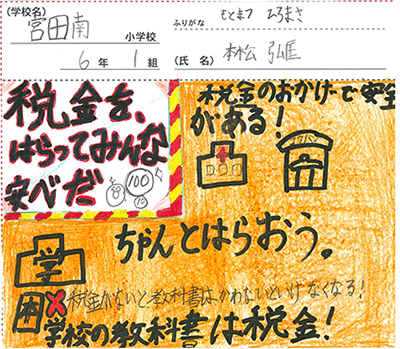 (学校名) 宮田南 小学校
6年 1組
ふりがな もとまつ ひろまさ
(氏名) 本松 弘匡
税金を、
はらってみんな
安べだ
100
10
税金のおかげで安全
がある!
ちゃんとはらおう。
学
×税金がないと教科書はかわないといけなくなる!
学校の教科書は税金!